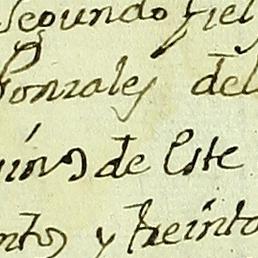 Segundo fiel
Gonzales del
uinos de Este
ntos y treinta